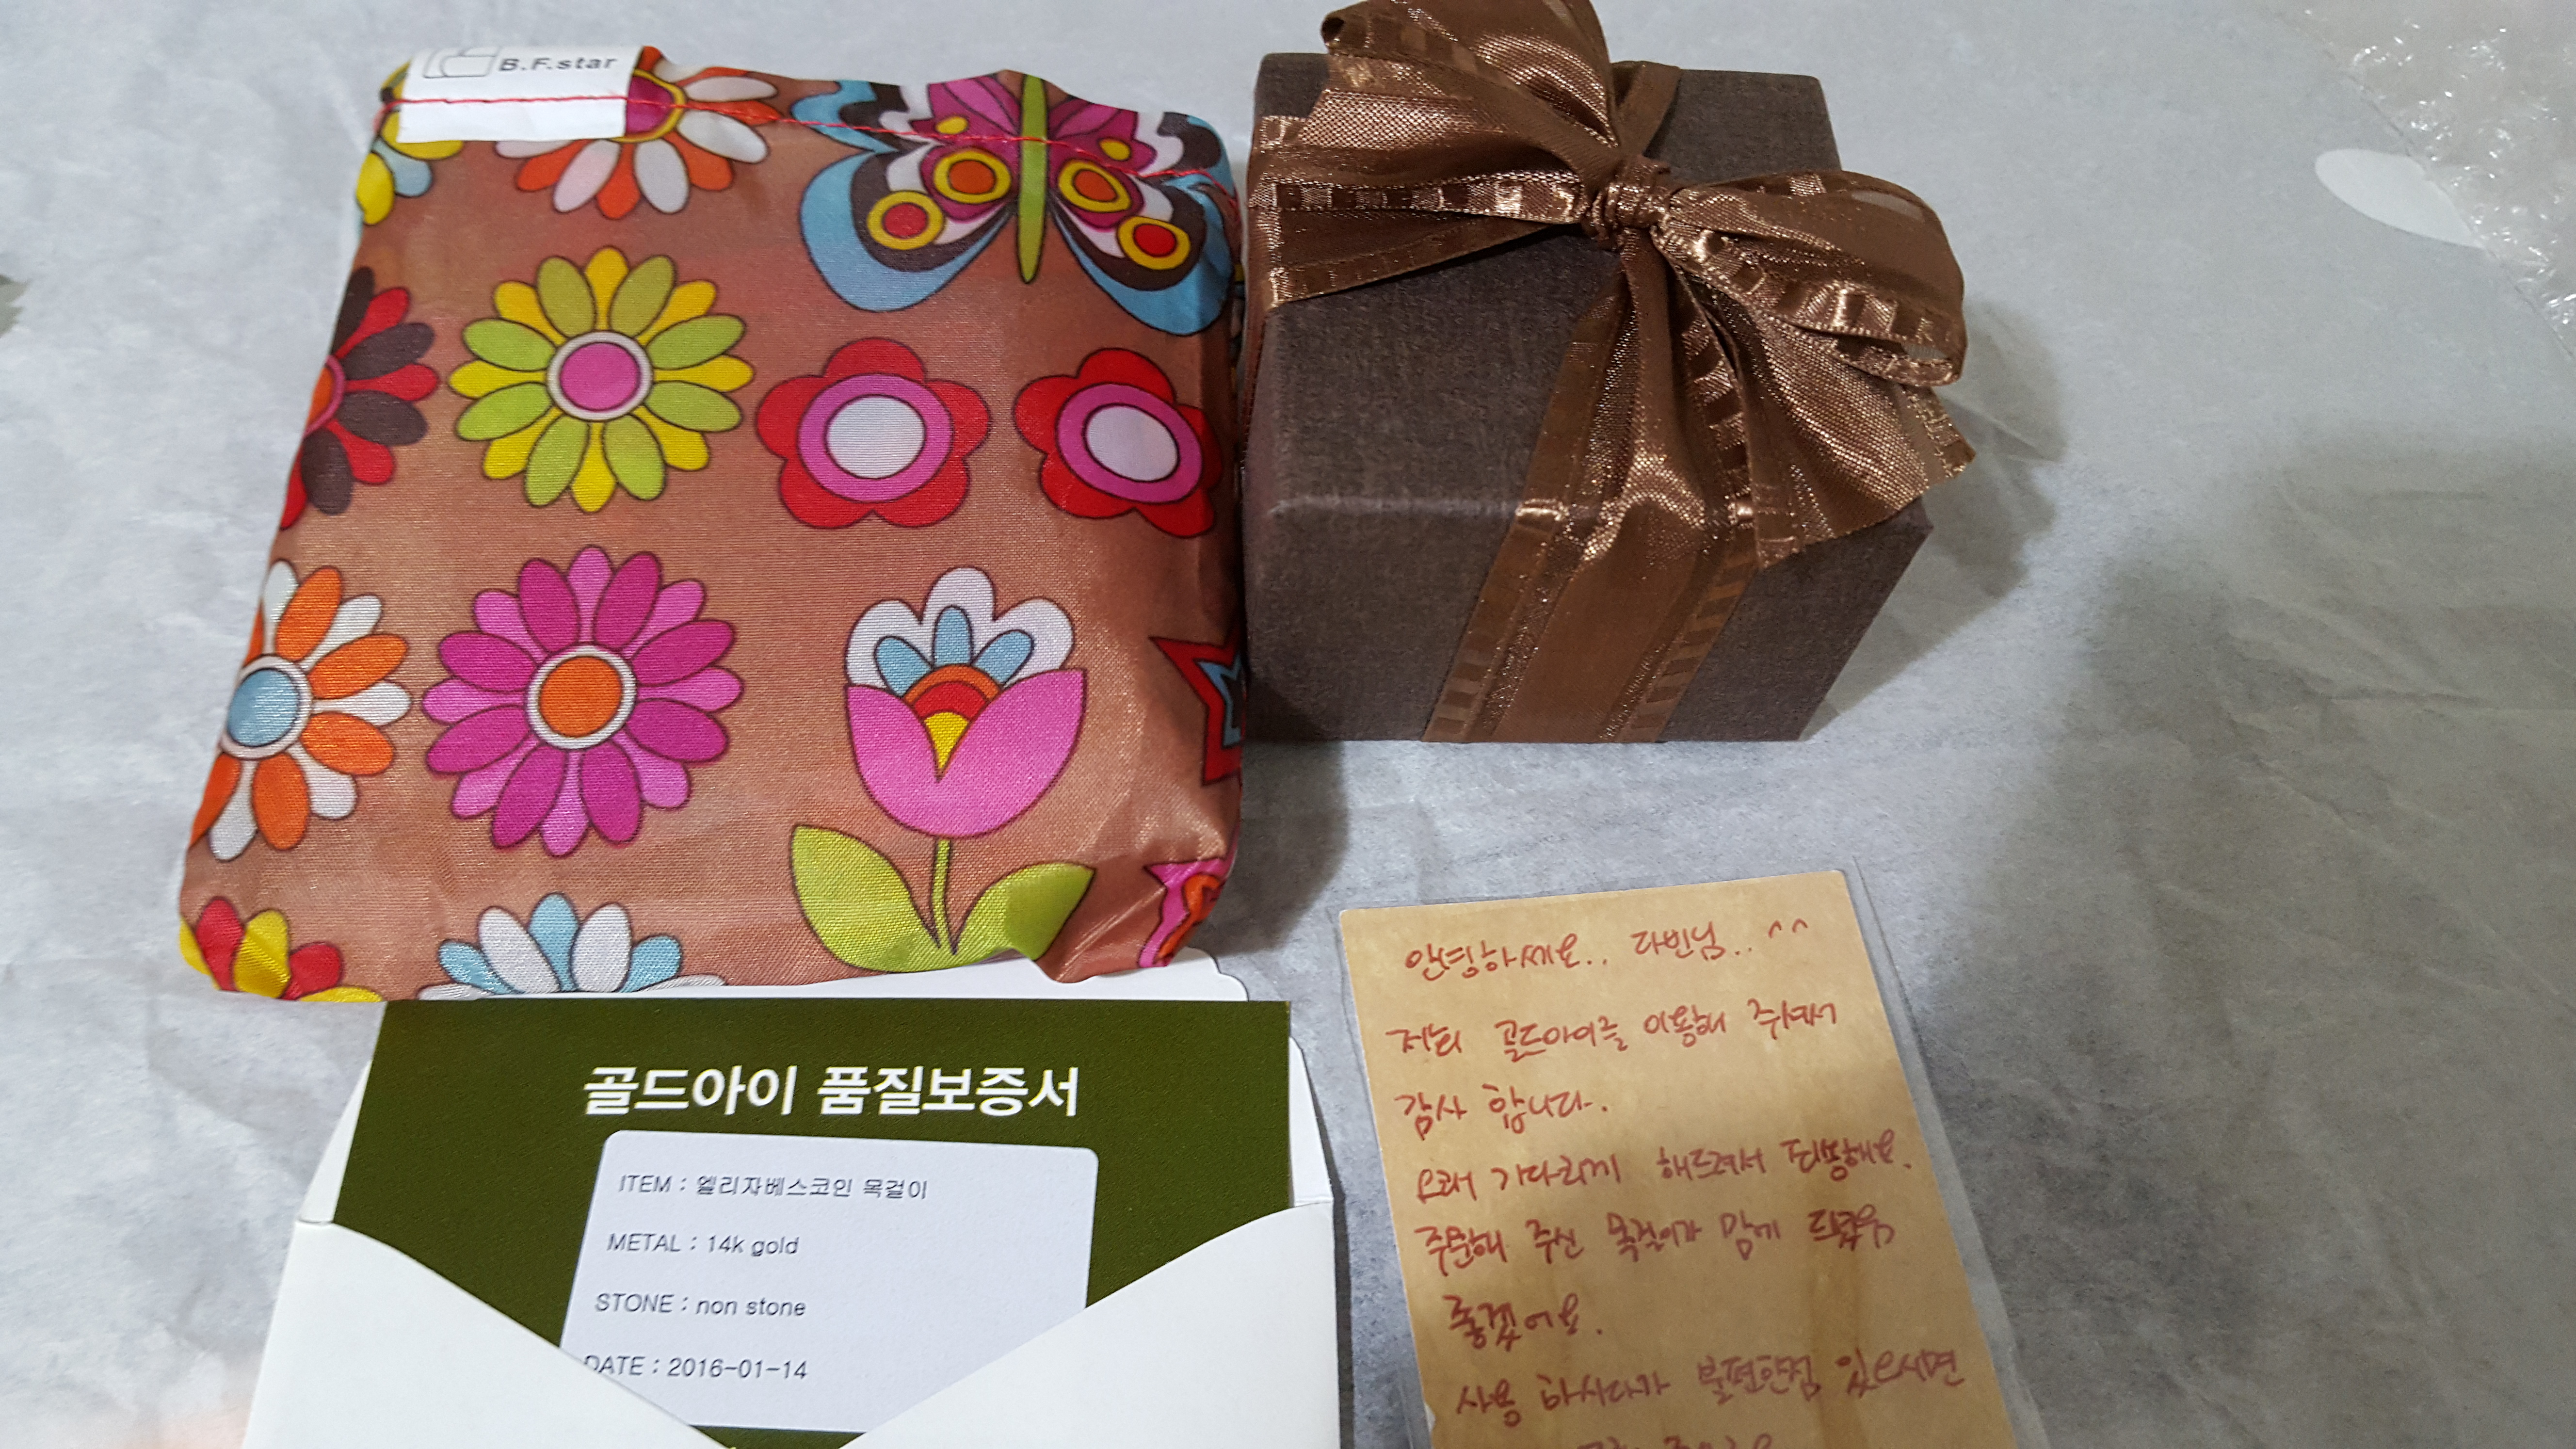 B.F.star
골드아이 품질보증서
ITEM : 엘리자베스코인 목걸이
METAL : 14k gold
STONE : non stone
DATE : 2016-01-14
안녕하세요.. 다빈님.. ^^
저희 골드아이를 이용해 주셔서
감사 합니다.
오래 기다리게 해드려서 죄송해요.
주문해 주신 목걸이가 맘에 드셨음
좋겠어요.
사용 하시다가 불편한점 있으시면